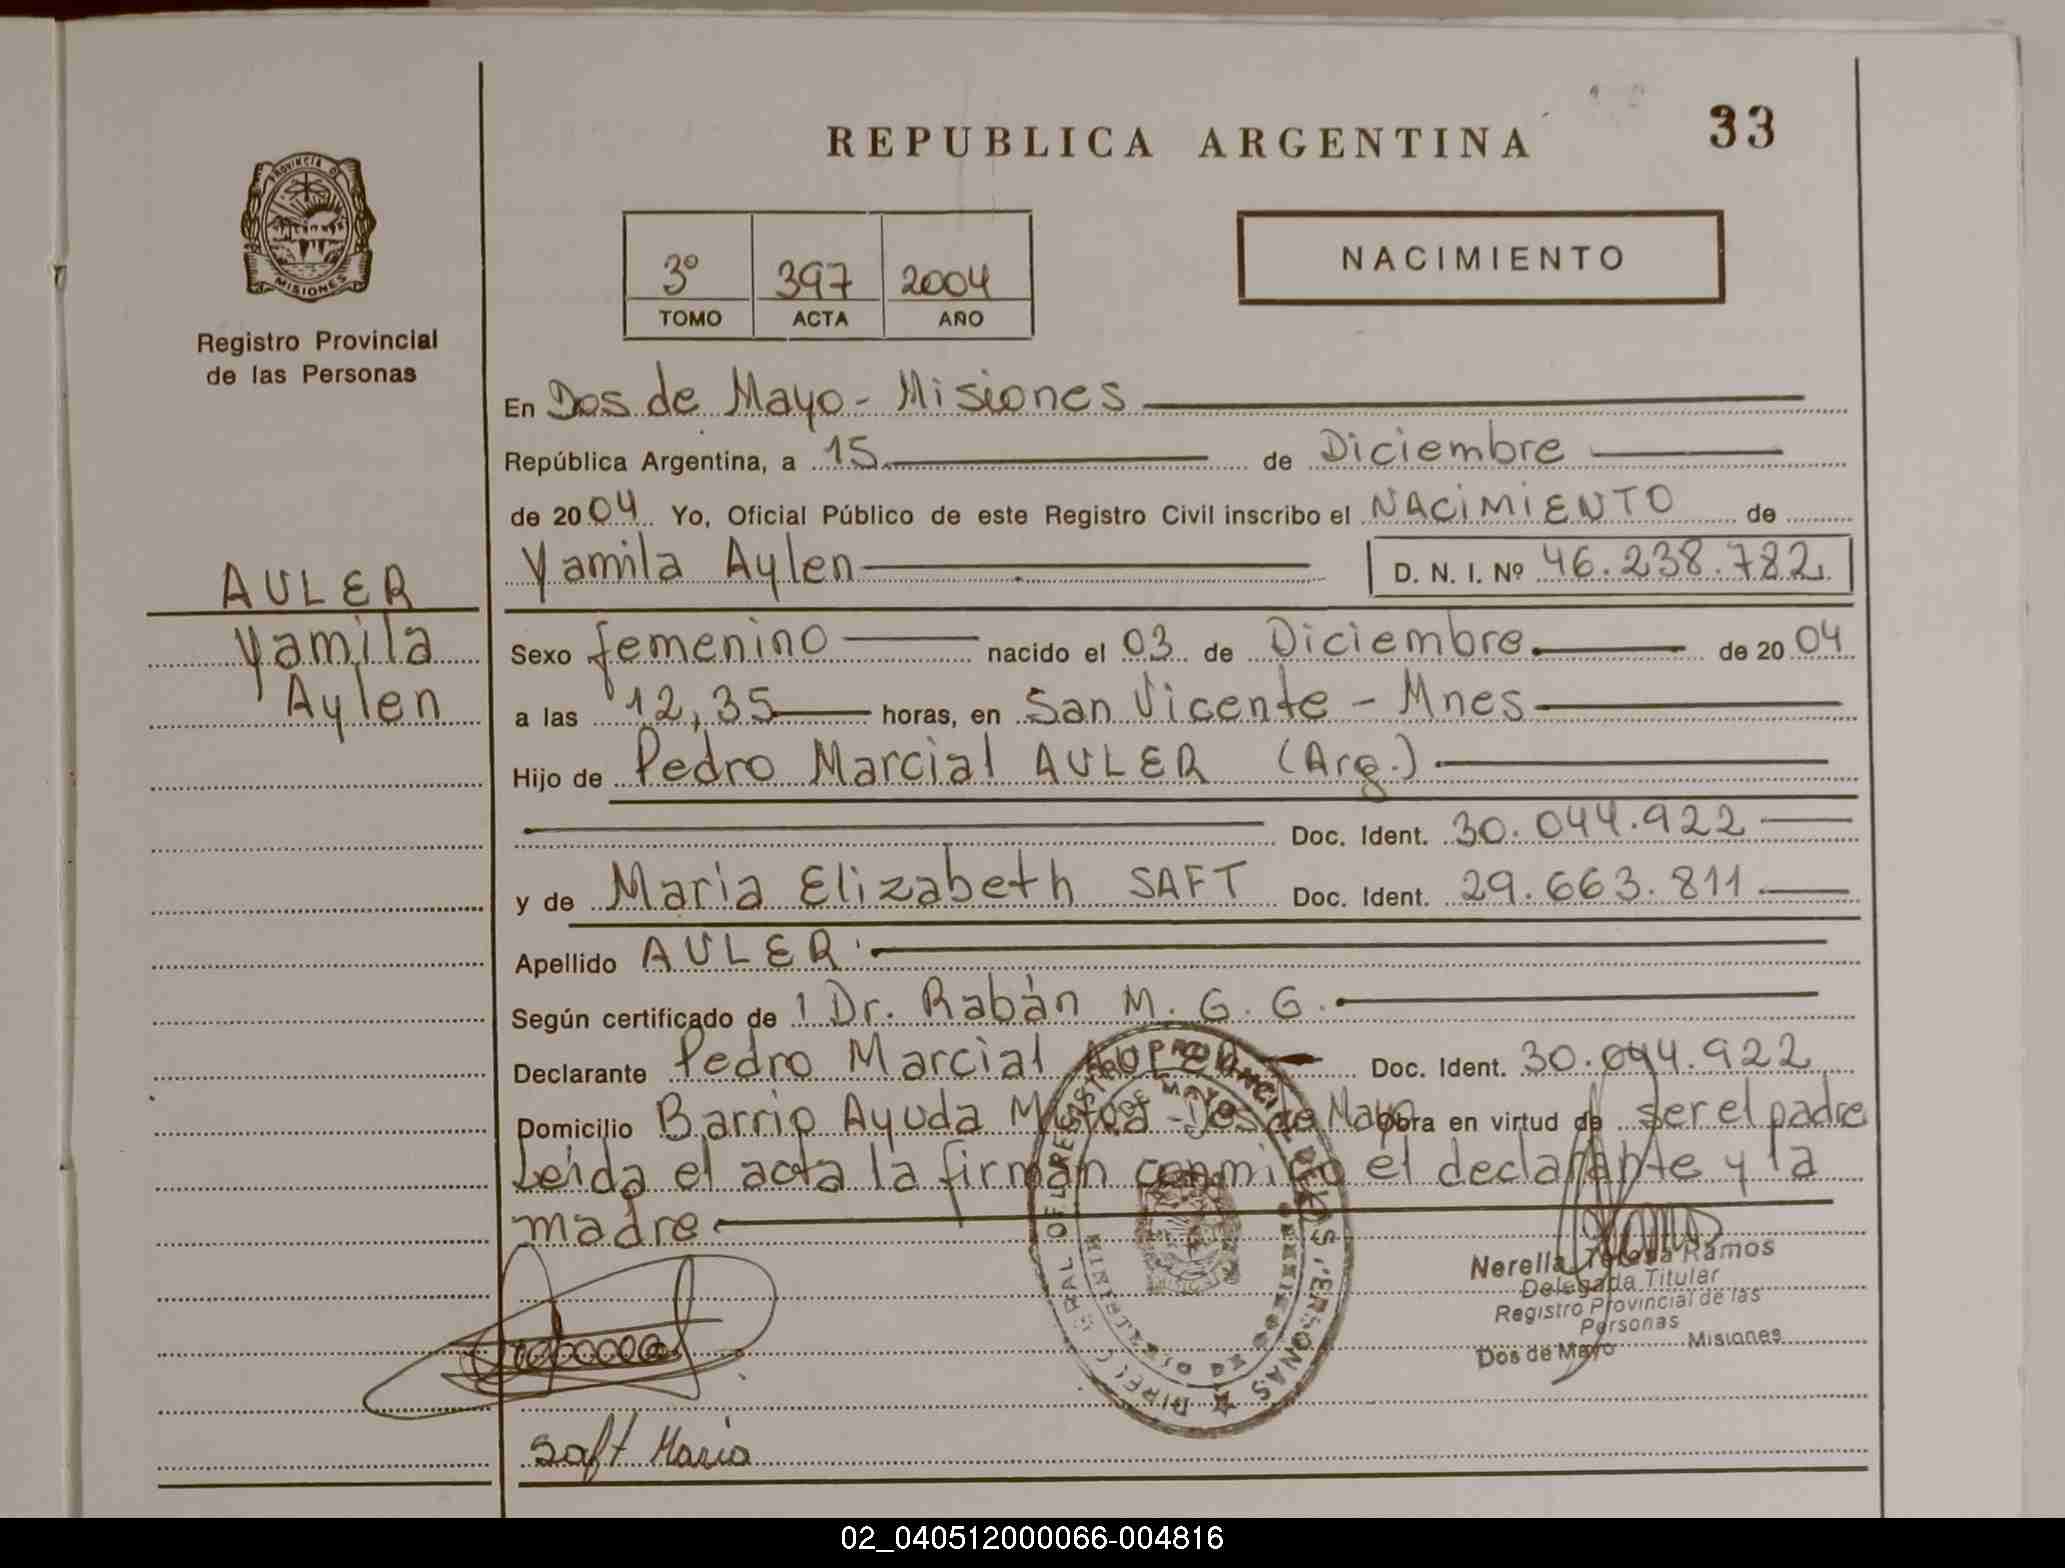 REPUBLICA ARGENTINA
33
PROVINCIA D
MISIONES
Registro Provincial
de las Personas
3º 397 2004
TOMO ACTA AÑO
NACIMIENTO
En Dos de Mayo - Misiones
República Argentina, a 15 de Diciembre
de 2004 Yo, Oficial Público de este Registro Civil inscribo el NACIMIENTO de
Yamila Aylen D. N. I. Nº 46.238.782
AULER
Yamila
Aylen
Sexo femenino nacido el 03 de Diciembre de 2004
a las 12,35 horas, en San Vicente - Mnes
Hijo de Pedro Marcial AULER (Arg.)
Doc. Ident. 30.044.922
y de Maria Elizabeth SAFT Doc. Ident. 29.663.811
Apellido AULER
Según certificado de 1 Dr. Rabán M. G. G.
Declarante Pedro Marcial AULER Doc. Ident. 30.044.922
Domicilio Barrio Ayuda Mutua - Dos de Mayo Obra en virtud de ser el padre
Leida el acta la firman conmigo el declarante y la
madre
Nerella Teresa Ramos
Delegada Titular
Registro Provincial de las
Personas
Dos de Mayo Misiones
Saft Maria
02_040512000066-004816